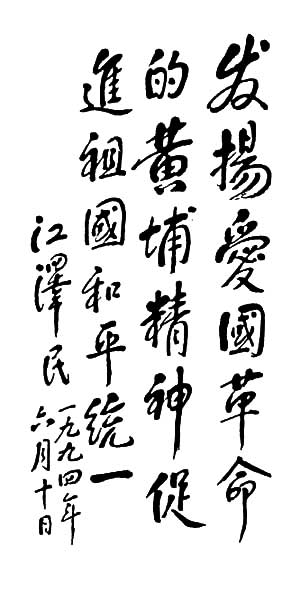 发揚愛國革命
的黃埔精神促
進祖國和平統一
江澤民
一九九四年
六月十日